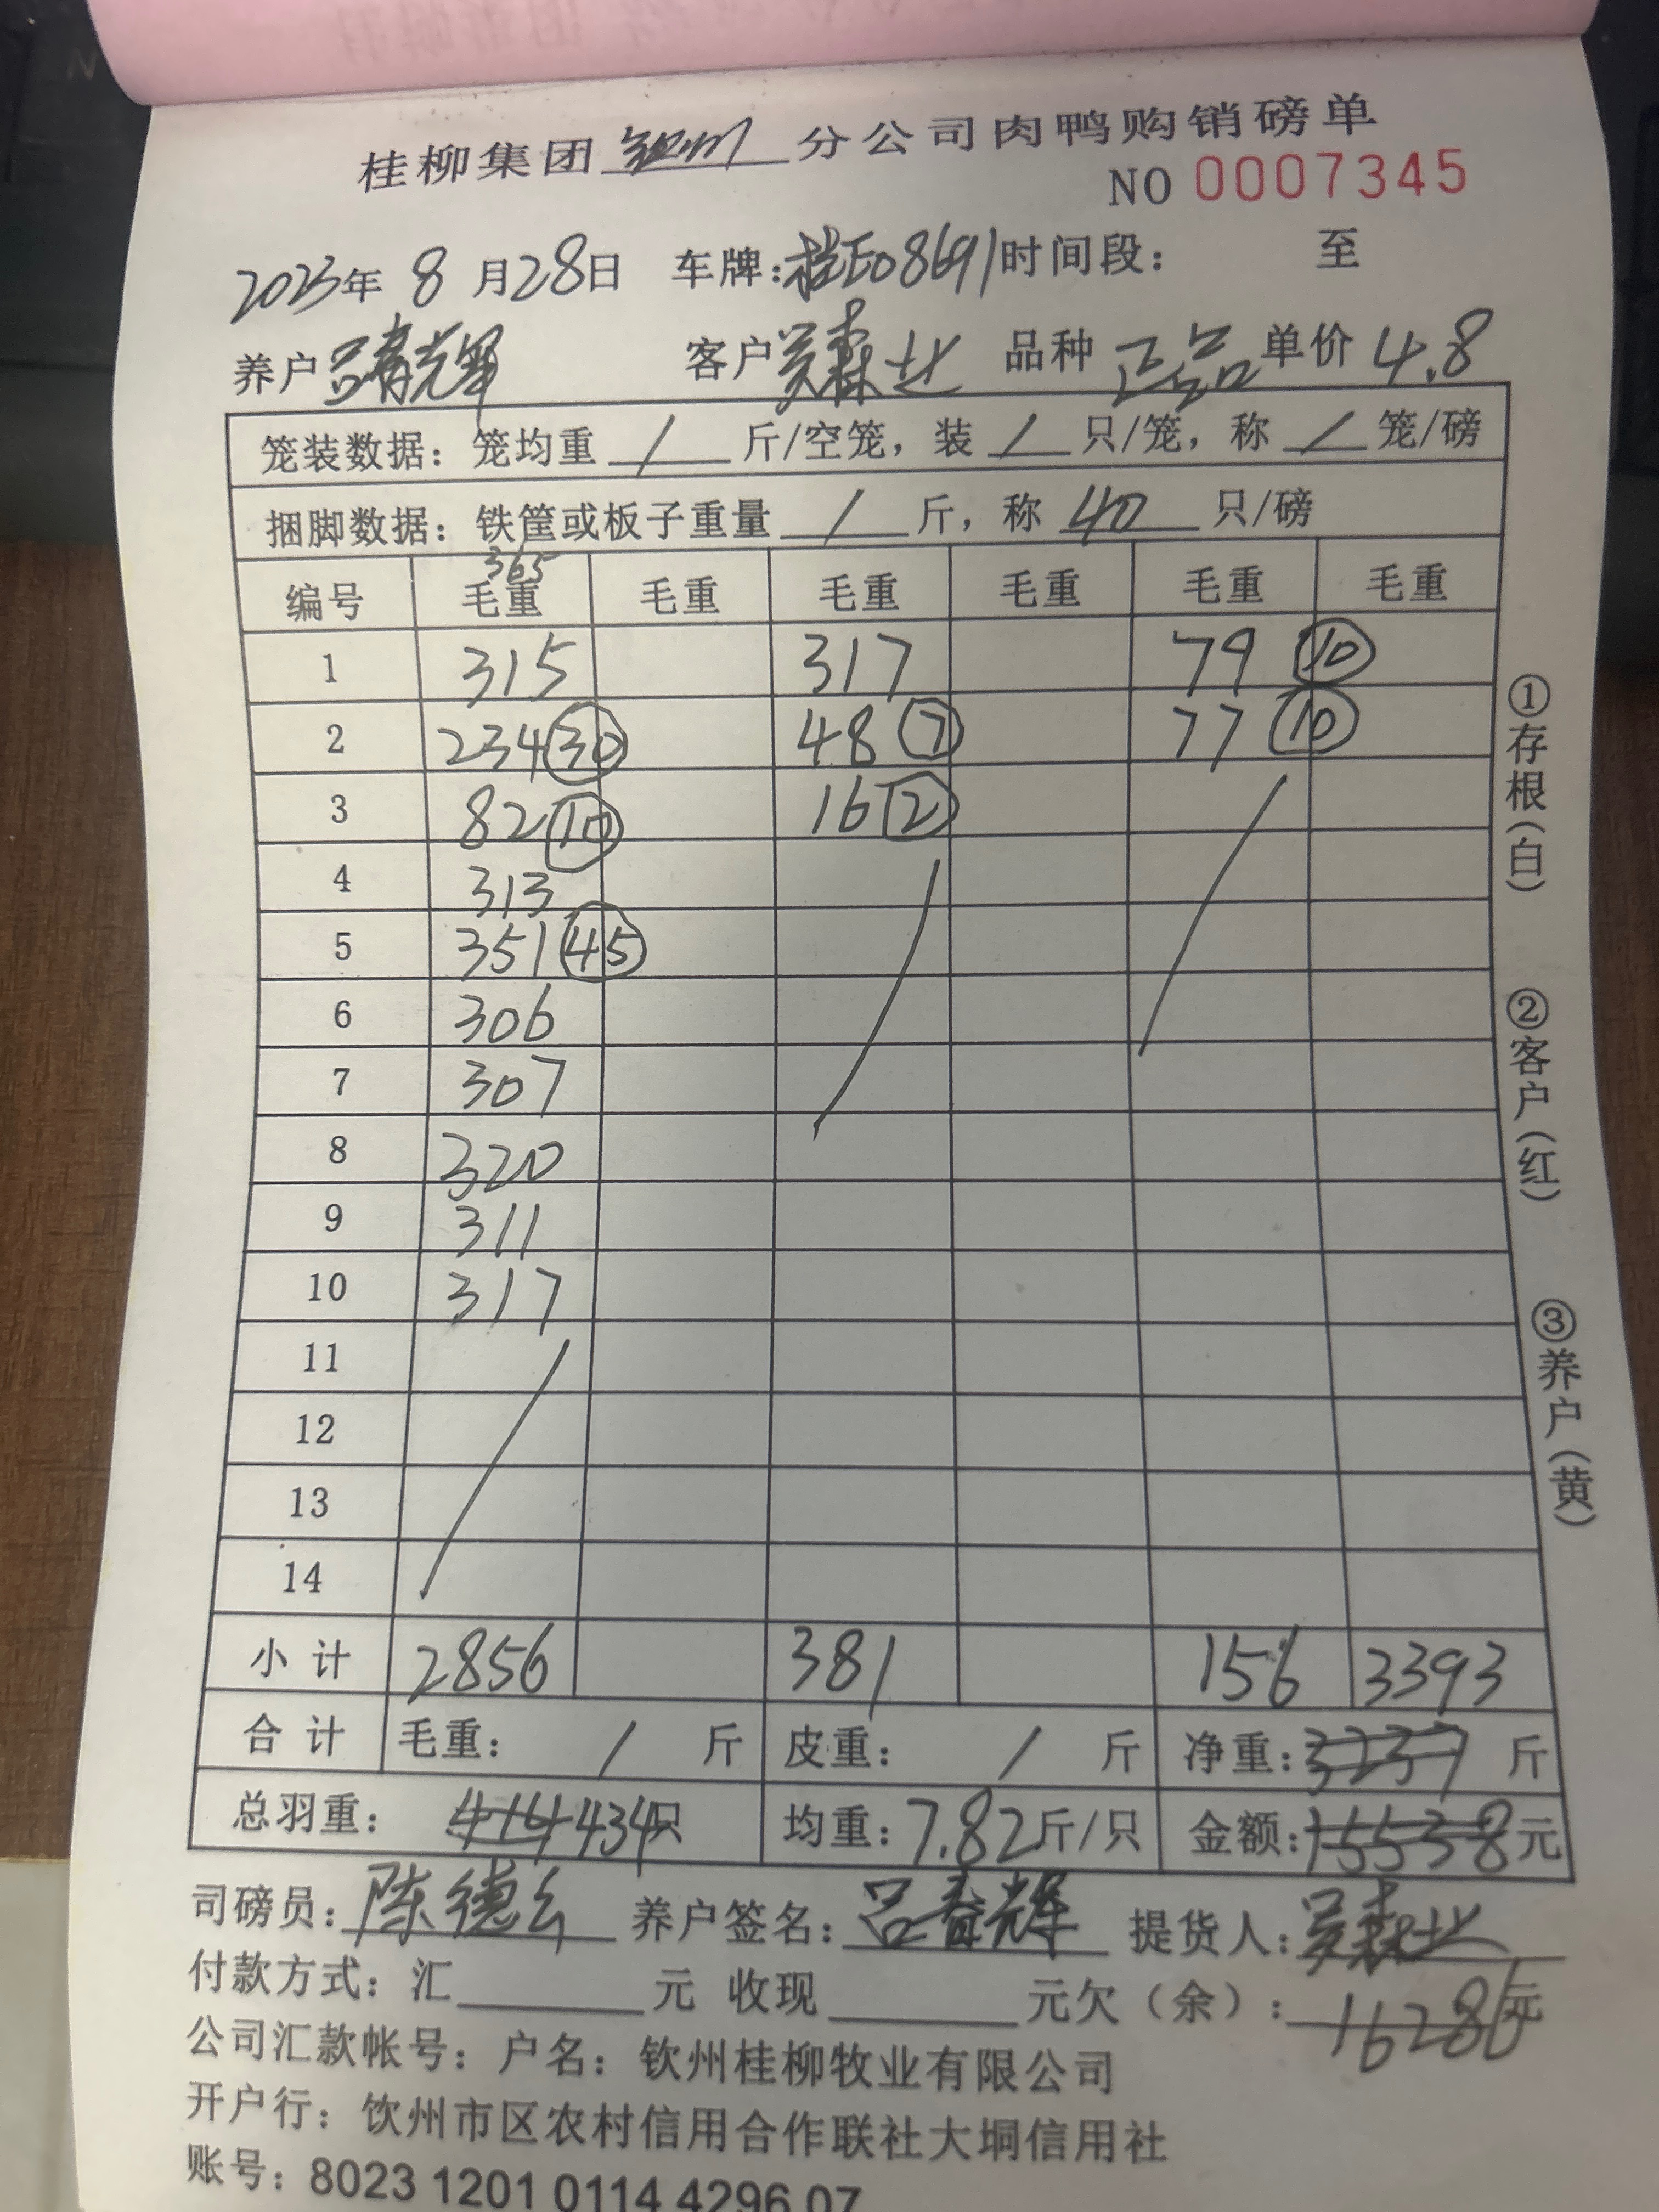 桂柳集团 钦州 分公司肉鸭购销磅单
NO 0007345
2023年 8 月28日 车牌:桂E08691 时间段: 至
养户 吕春辉 客户 吴森 品种 正品 单价 4.8
笼装数据: 笼均重 / 斤/空笼, 装 / 只/笼, 称 / 笼/磅
捆脚数据: 铁筐或板子重量 / 斤, 称 40 只/磅
365
编号 毛重 毛重 毛重 毛重 毛重 毛重
1 315 317 79 ⑩
2 234 ㉚ 48 ⑦ 77 ⑩
3 82 ⑩ 16 ②
4 313
5 351 ㊺
6 306
7 307
8 320
9 311
10 317
11
12
13
14
小计 2856 381 156 3393
合计 毛重: / 斤 皮重: / 斤 净重: 3237 斤
总羽重: 414 434只 均重: 7.82斤/只 金额: 15538元
司磅员: 陈德 养户签名: 吕春辉 提货人: 吴森
付款方式: 汇 元 收现 元欠(余): 16286元
公司汇款帐号: 户名: 钦州桂柳牧业有限公司
开户行: 钦州市区农村信用合作联社大垌信用社
账号: 8023 1201 0114 4296 07
①存根(白)
②客户(红)
③养户(黄)